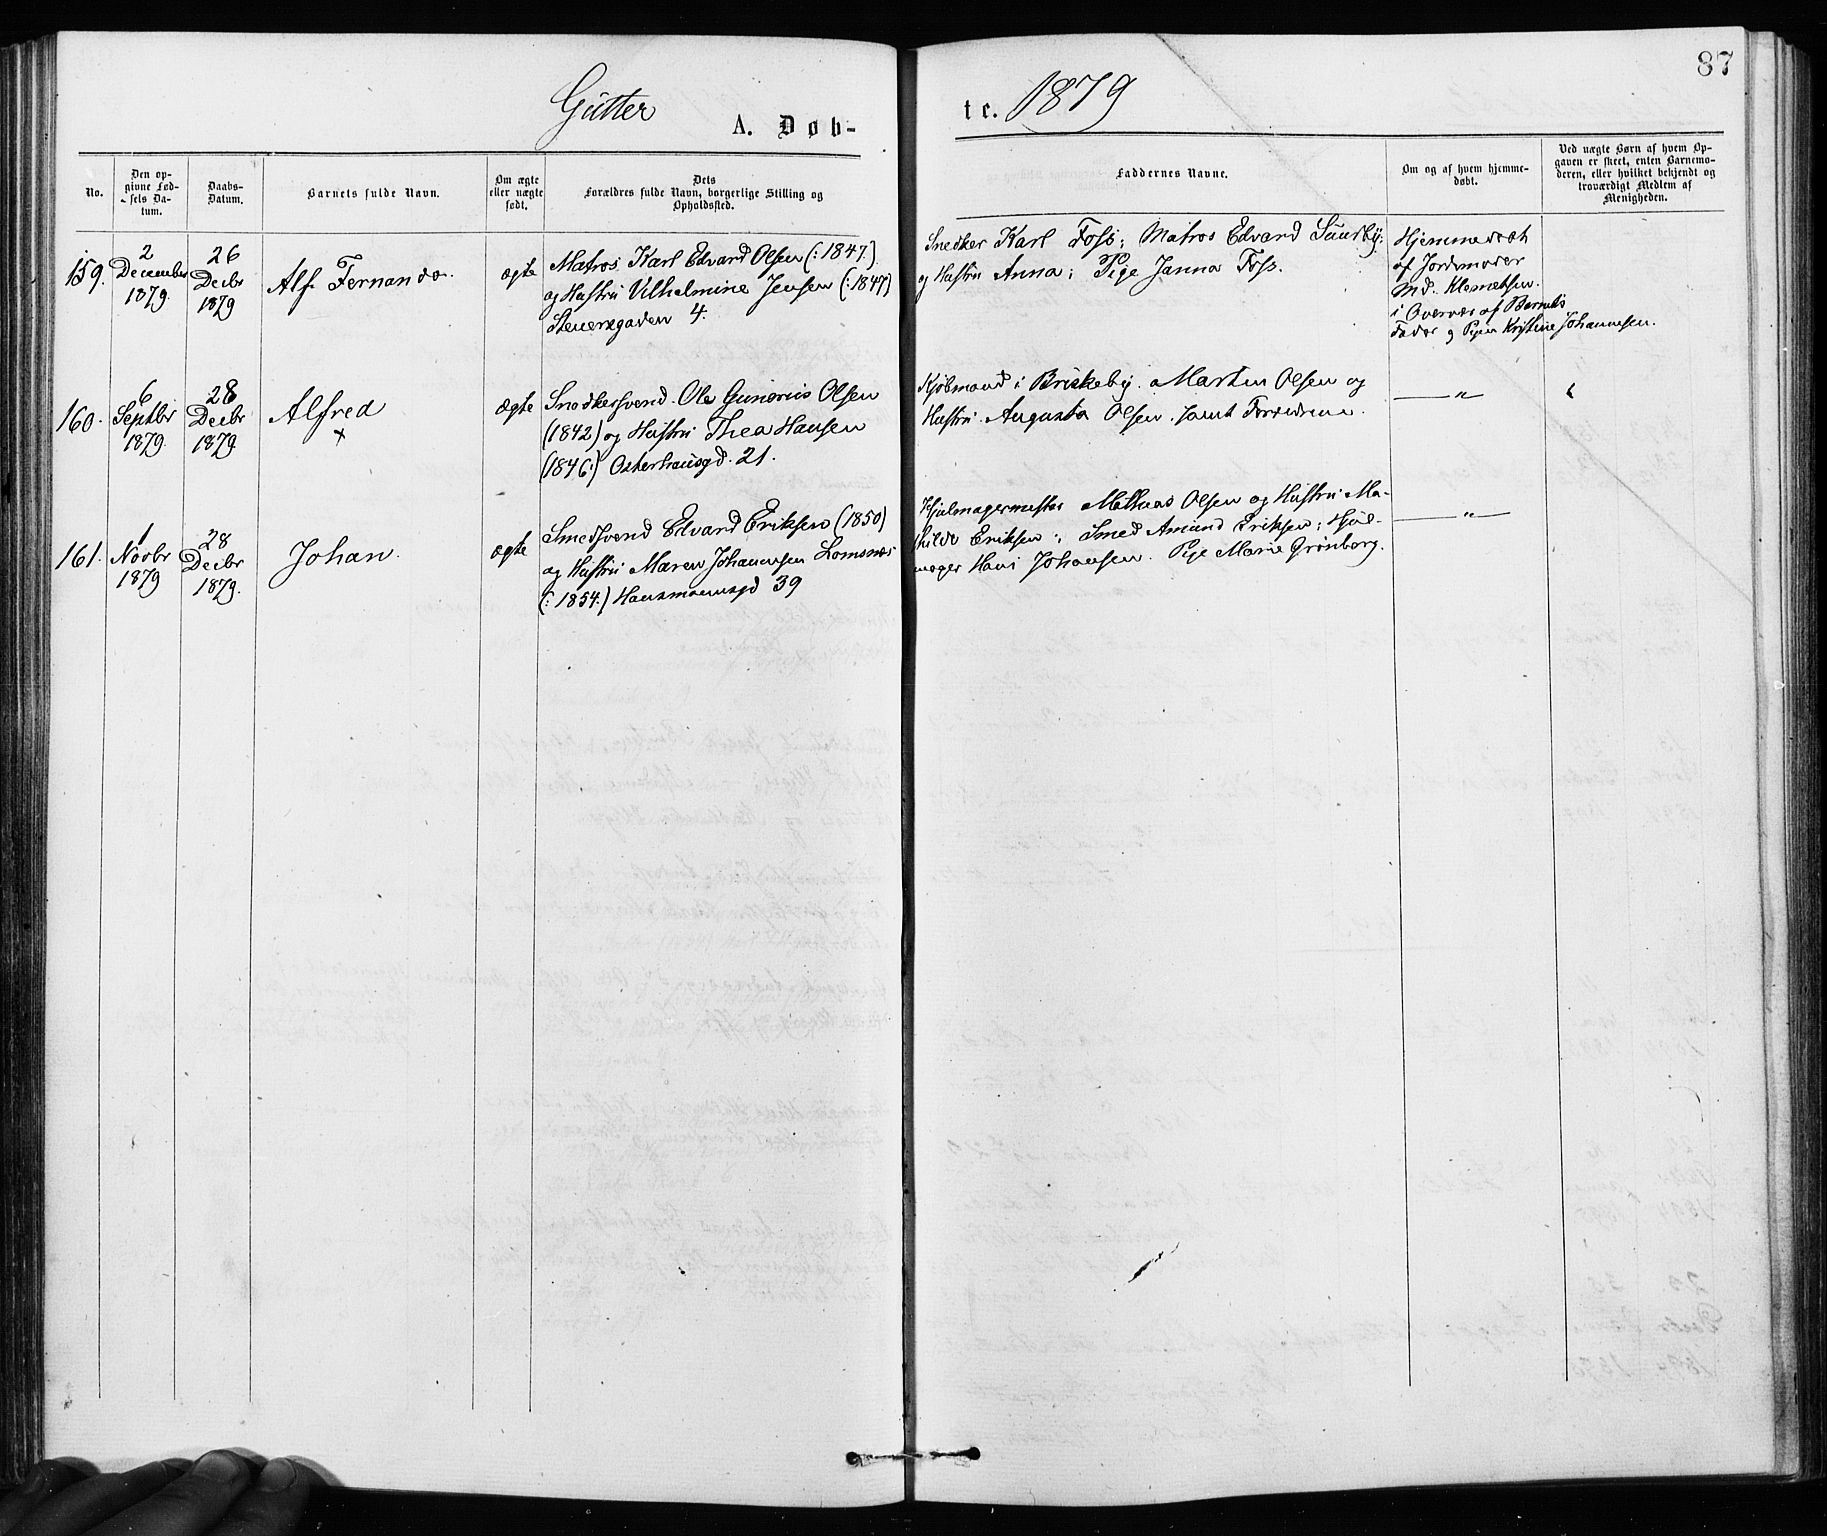 87
Gutter
A. Døb-
te. 1879
No.
Den op-
givne Fød-
sels Da-
tum.
Daabs-
Datum.
Barnets fulde Navn.
Om ægte
eller uægte
født.
Dets
Forældres fulde Navn, borgerlige Stilling og
Opholdssted.
Faddernes Navne.
Om og af hvem hjemme-
døbt.
Ved uægte Børn af hvem Op-
gaven er skeet, enten Barnemo-
deren, eller hvilket bekjendt og
troværdigt Medlem af
Menigheden.
159.
2
December
1879.
26
Decbr
1879
Alf Fernando.
ægte
Matros Karl Edvard Olsen (:1847.)
og Hustru Vilhelmine Jensen (:1847)
Steenersgaden 4.
Snedker Karl Foss; Matros Edvard
og Hustru Anna; Pige Janna Foss.
Hjemmedøbt
af Jordmoder
Md. Klemetsen
i Overvær af Barnets
Fader og Pigen Kristine Johannesen.
160.
6
Septbr
1879.
28
Decbr
1879.
Alfred
x
ægte
Snedkersvend Ole Gunerius Olsen
(1842) og Hustru Thea Hansen
(1846.) Osterhausgd. 21.
Kjøbmand i Briskeby. Martin Olsen og
Hustru Augusta Olsen. samt Forældrene.
— " —
161.
1
Novbr
1879
28
Decbr
1879.
Johan.
ægte
Smedsvend Edvard Eriksen (1850)
og Hustru Maren Johannesen Lomsnæs
(:1854.) Hausmannsgd 39
Hjulmagermester Mathias Olsen og Hustru Ma-
thilde Eriksen; Smed Amund Eriksen; Hjul-
mager Hans Johansen. Pige Marie Grønborg.
— " —